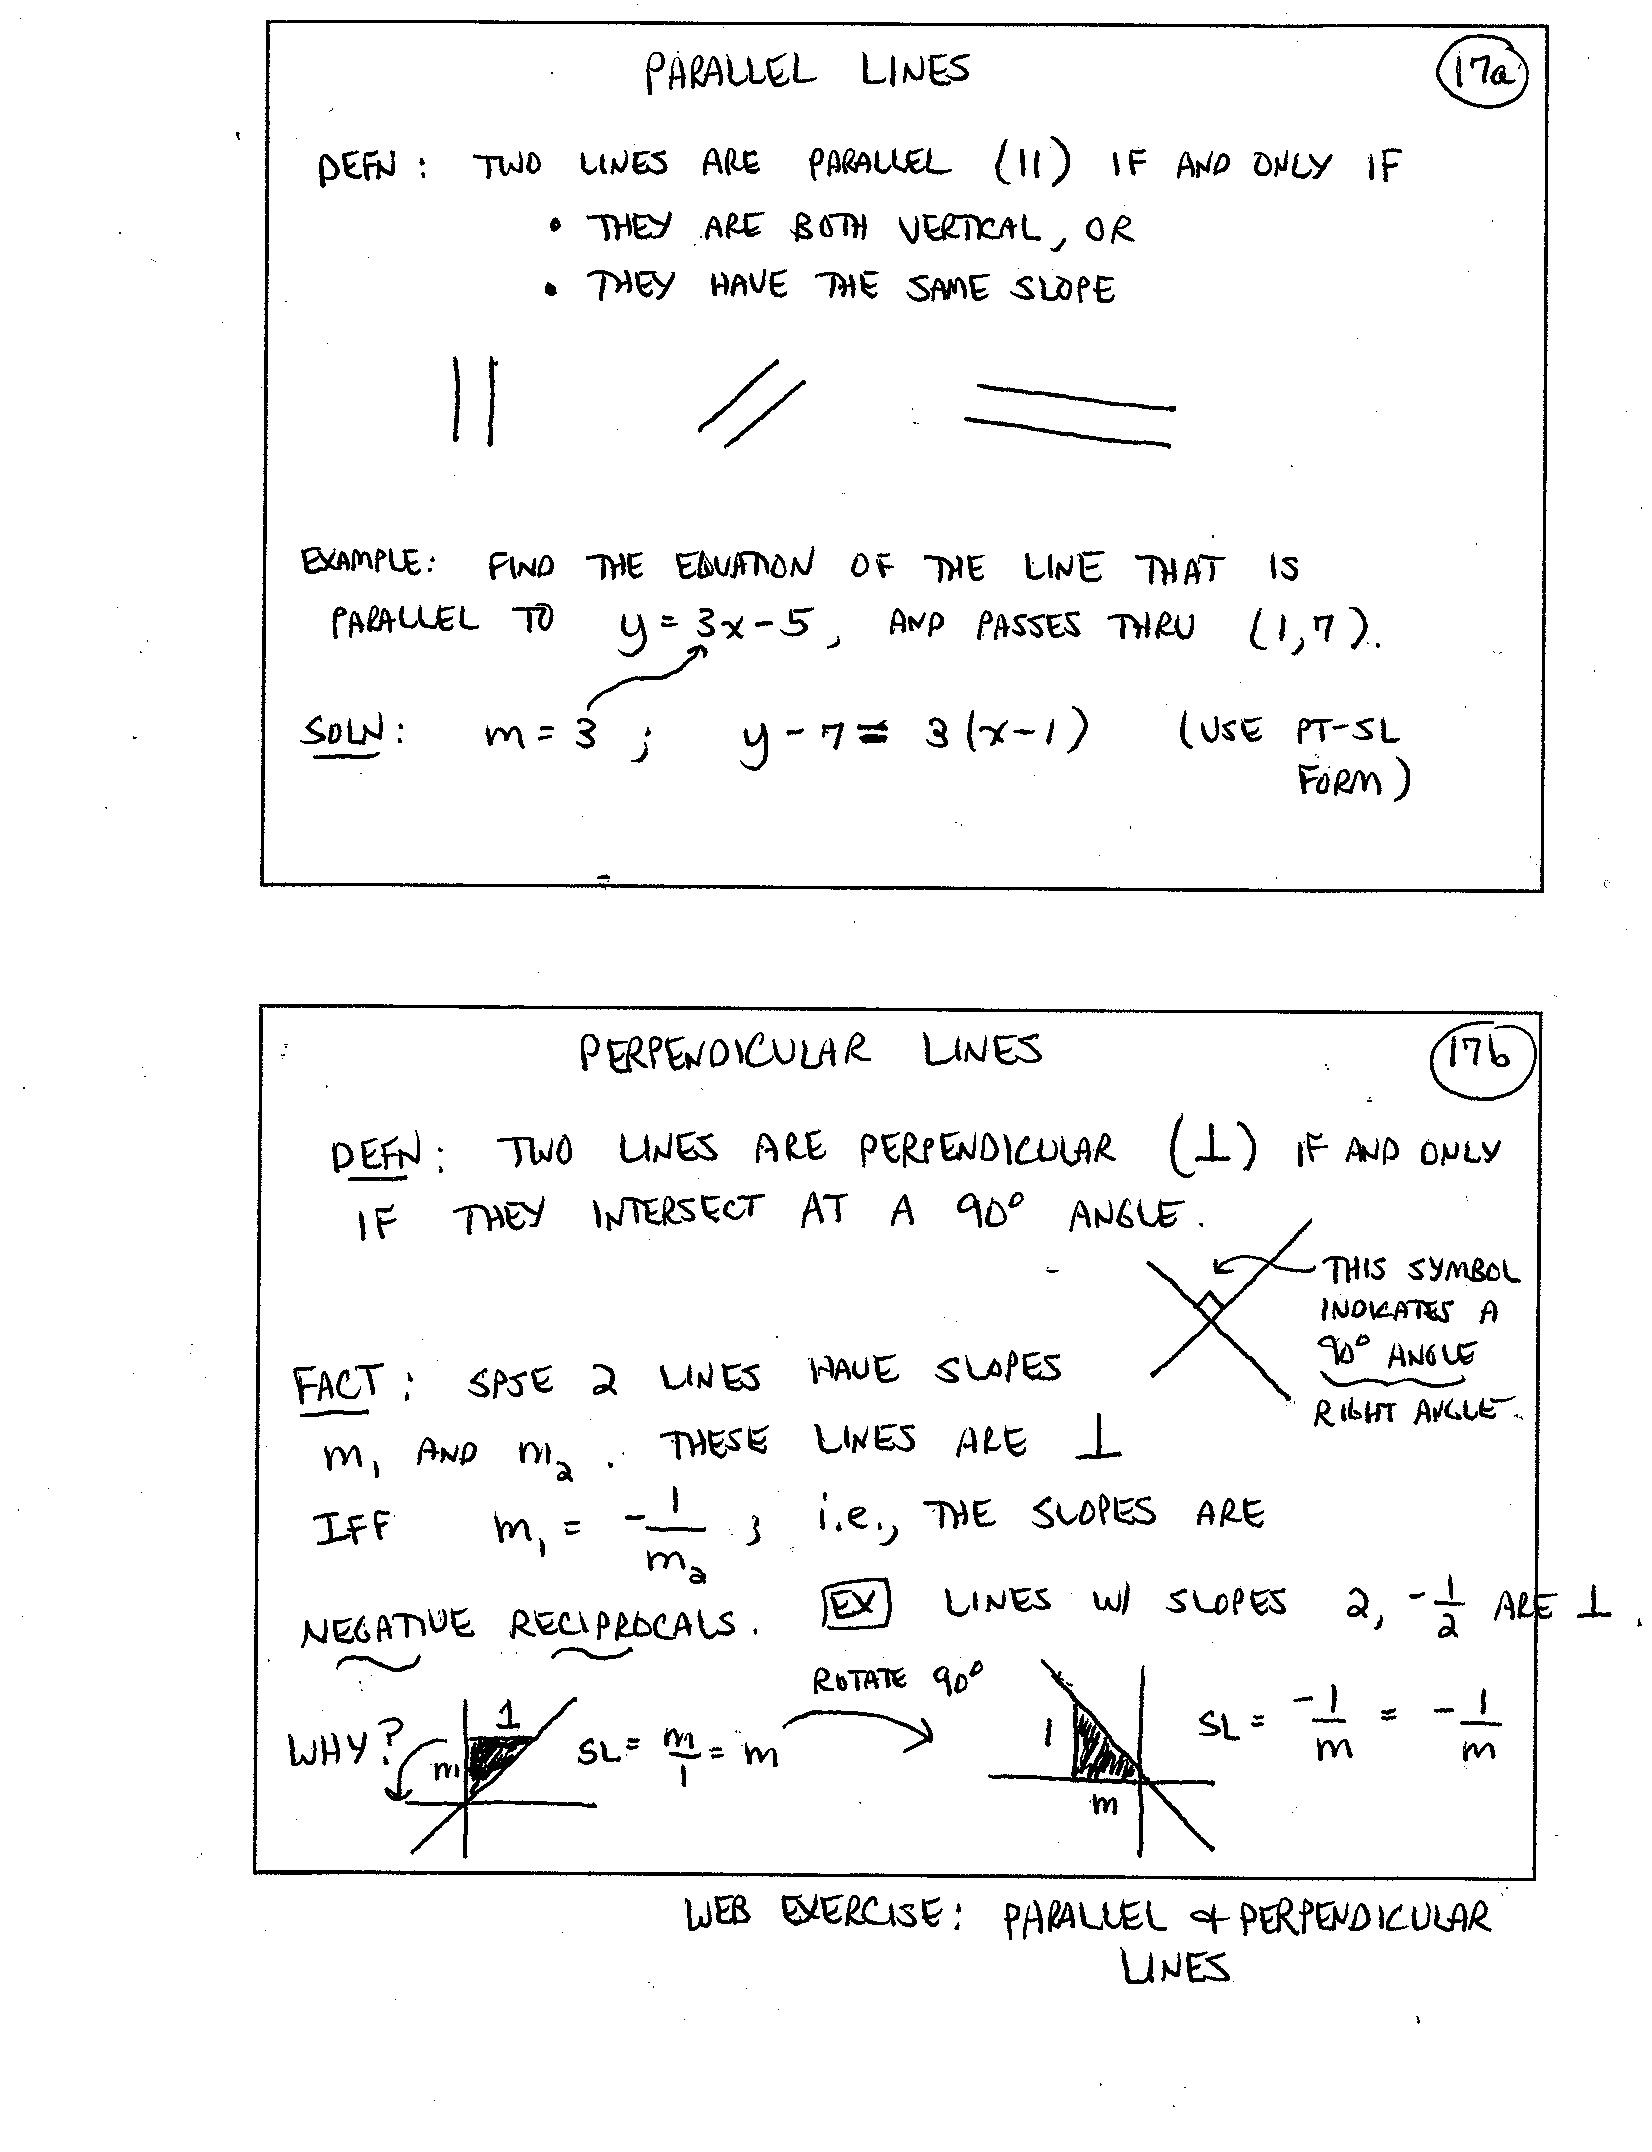 PARALLEL LINES 17a
DEFN: TWO LINES ARE PARALLEL (||) IF AND ONLY IF
• THEY ARE BOTH VERTICAL, OR
• THEY HAVE THE SAME SLOPE
EXAMPLE: FIND THE EQUATION OF THE LINE THAT IS
PARALLEL TO y = 3x - 5, AND PASSES THRU (1,7).
SOLN: m = 3 ; y - 7 = 3(x-1) (USE PT-SL
FORM)
PERPENDICULAR LINES 17b
DEFN: TWO LINES ARE PERPENDICULAR (⊥) IF AND ONLY
IF THEY INTERSECT AT A 90° ANGLE.
THIS SYMBOL
INDICATES A
90° ANGLE
RIGHT ANGLE.
FACT: SPSE 2 LINES HAVE SLOPES
m₁ AND m₂. THESE LINES ARE ⊥
IFF m₁ = -1/m₂ ; i.e., THE SLOPES ARE
NEGATIVE RECIPROCALS. EX LINES W/ SLOPES 2, -1/2 ARE ⊥.
ROTATE 90°
WHY? 1 m SL = m/1 = m 1 m SL = -1/m = -1/m
WEB EXERCISE: PARALLEL & PERPENDICULAR
LINES